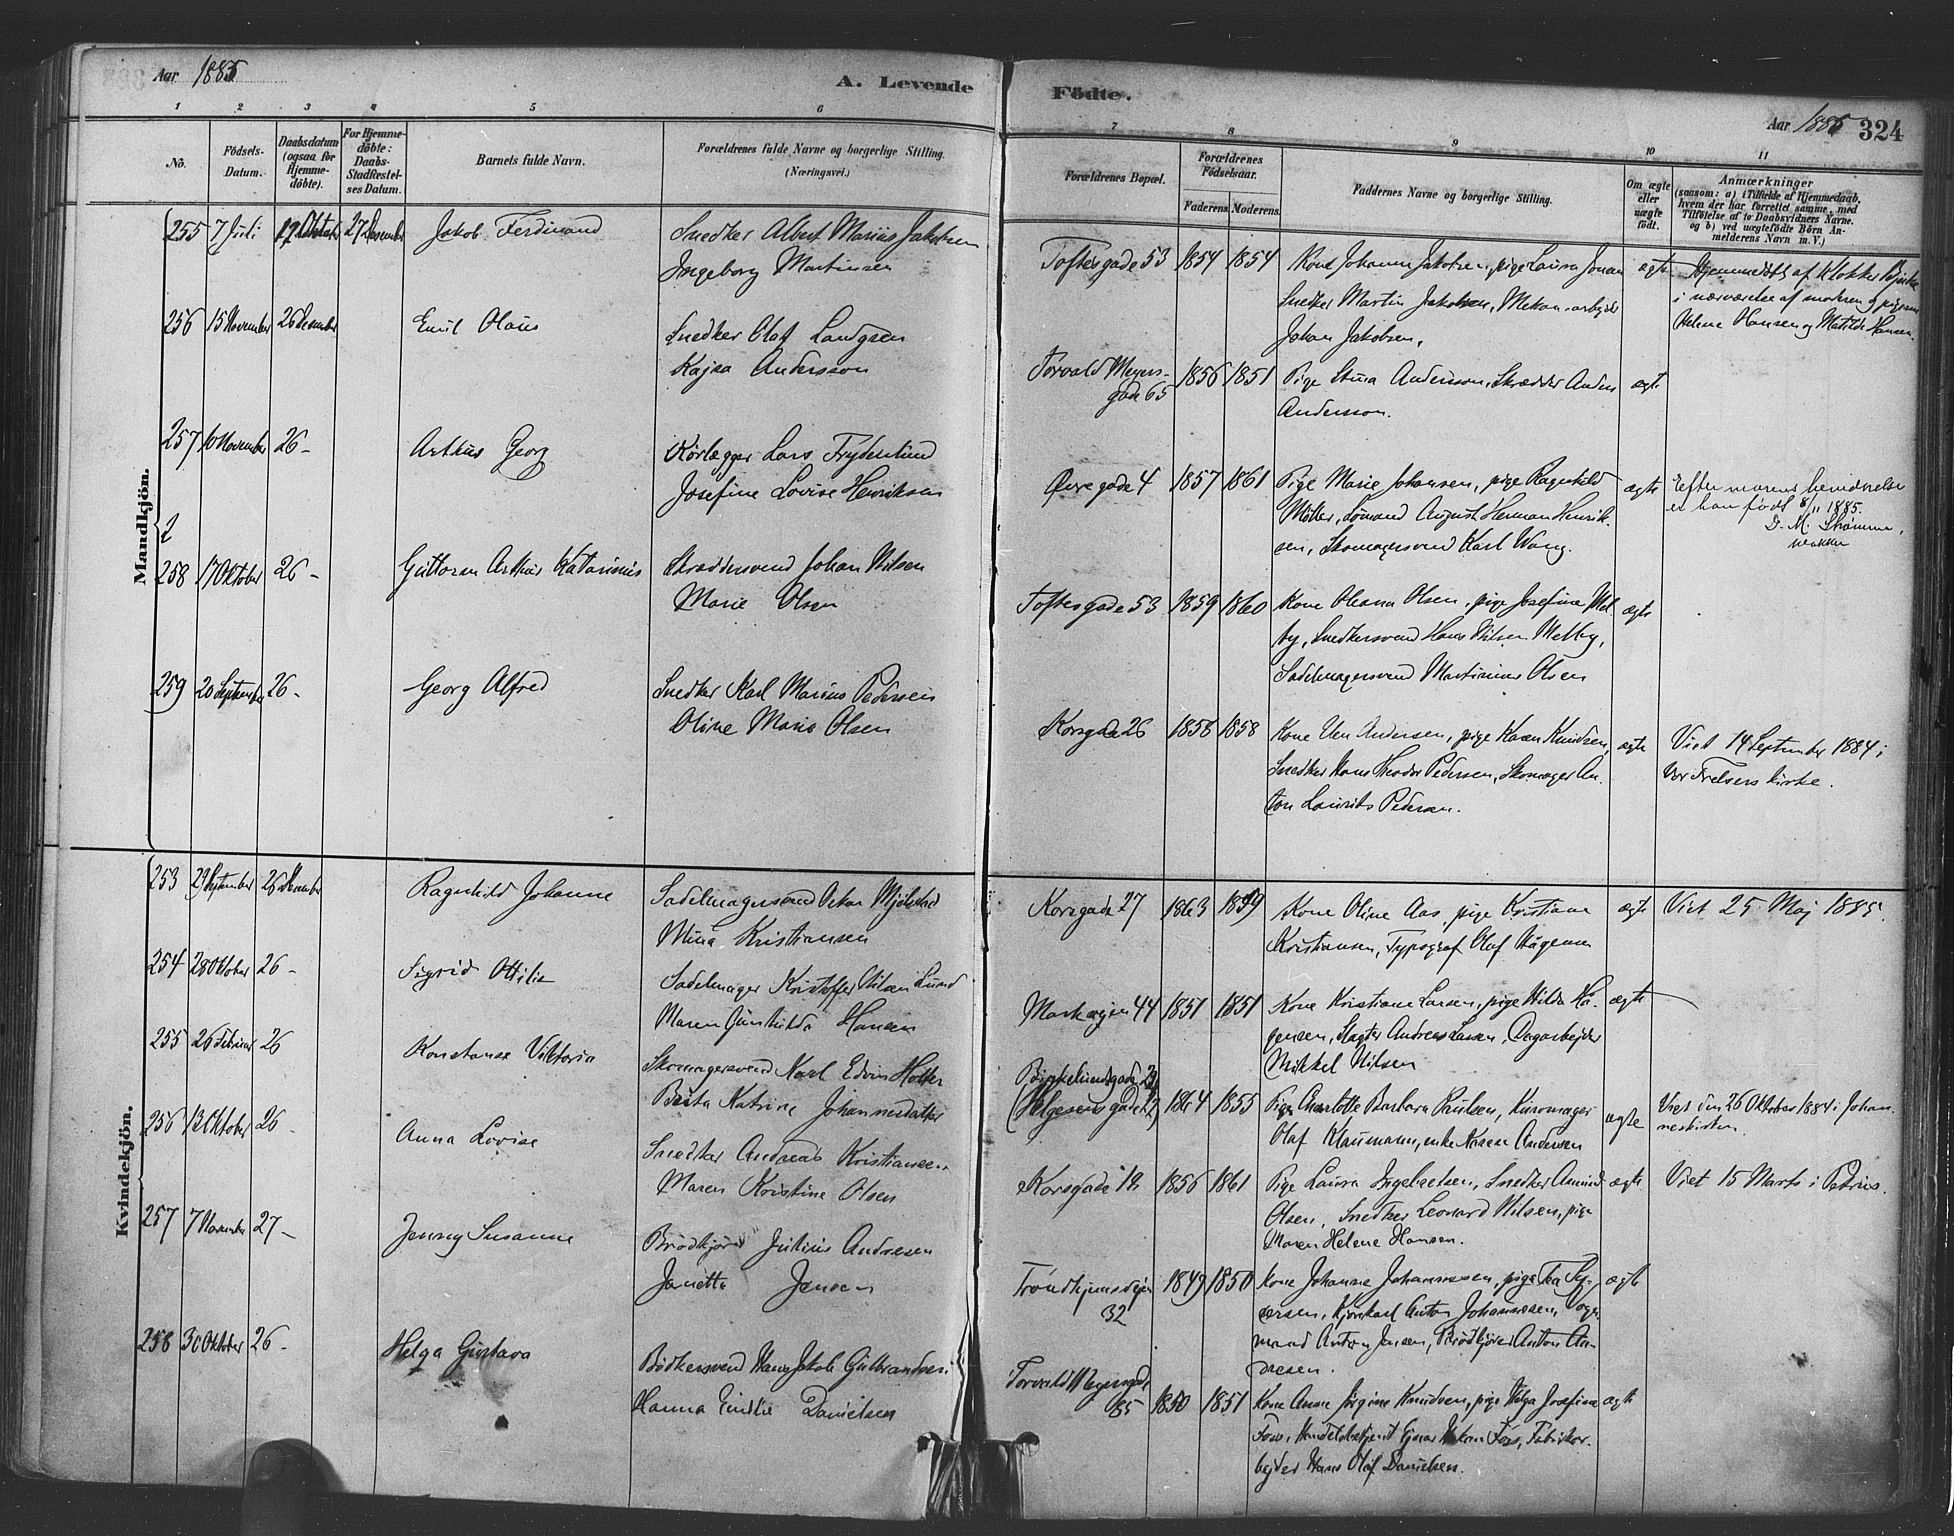 Aar 1885
A. Levende
Födte.
Aar 1885
324
1 2 3 4 5 6
7 8 9 10 11
No.
Födsels-
Datum.
Daabsdatum
(ogsaa for
Hjemme-
döbte).
For Hjemme-
döbte:
Daabs-
Stadfæstel-
ses Datum.
Barnets fulde Navn.
Forældrenes fulde Navne og borgerlige Stilling.
(Næringsvei.)
Forældrenes Bopæl.
Forældrenes
Födselsaar.
Faderens. Moderens.
Faddernes Navne og borgerlige Stilling.
Om ægte
eller
uægte
født.
Anmærkninger
(saasom: a) i Tilfælde af Hjemmedaab,
hvem der har forrettet samme, med
Tilföielse af to Daabsvidners Navne,
og b) ved uægtefödte Börn An-
melderens Navn m. V.)
Mandkjön.
255 7 Juli 12 Oktober 27 Desember Jakob Ferdinand
Snedker Albert Marius Jakobsen
Ingeborg Martinsen
Toftesgade 53 1854 1854
Kone Johanne Jakobsen, pige Laura Jonan
Snedker Martin Jakobsen, Mekan. arbejder
Johan Jakobsen,
ægte
Hjemmedøbt af Klokker Bjerke
i nærværelse af moderen og pigerne
Helene Hansen og Matilde Hansen.
256 15 November 26 Desember Emil Olaus
Snedker Olaf Landgren
Kajsa Andersson
Torvald Meyers-
gade 65 1856 1851
Pige Stina Andersson, Skrædder Anders
Andersson.
ægte
257 10 November 26 - Artur Georg
Rörlægger Lars Frydenlund
Josefine Lovise Henriksen
Øvregade 4 1857 1861
Pige Marie Johansen, pige Ragnhild
Möller, Sømand August Herman Henrik-
sen, Skomagersvend Karl Wang.
ægte
Efter morens henvendelse
er han født 8/11 1885.
D. M.
258 17 Oktober 26 - Guttorm Artur Katarinus
Skræddersvend Johan Nilsen
Marie Olsen
Toftesgade 53 1859 1860
Kone Oleana Olsen, pige Josefine Mel-
by, Snedkersvend Hans Nilsen Melby,
Sadelmagersvend Martinius Olsen
ægte
259 20 September 26 - Georg Alfred
Snedker Karl Marius Pedersen
Oline Marie Olsen
Korsgade 26 1858 1858
Kone Andersen, pige Karen Knudsen,
Snedker Hans Theodor Pedersen, Skomager An-
ton Laurits Pedersen.
ægte
Viet 14 September 1884 i
Vor Frelsers kirke.
Kvindekjön.
253 29 September 26 Desember Ragnhild Johanne
Sadelmagersvend Oskar Mjölstad
Mina Kristiansen
Korsgade 27 1863 1859
Kone Oline Aas, pige Kristiane
Kristiansen, Typograf Olaf Hågensen
ægte
Viet 25 Maj 1885.
254 28 Oktober 26 - Sigrid Ottilie
Sadelmager Kristoffer Nilsen Lund
Maren Gunhilda Hansen
Markvejen 44 1851 1851
Kone Kristiane Larsen, pige Hilda Ha-
gensen, Slagter Andreas Larsen, Dagarbejder
Mikkel Nilsen
ægte
255 26 Februar 26 Konstanse Viktoria
Skomagersvend Karl Edvin Holter
Brita Katrine Johannesdatter
Birkelundsgade 24
(Helgesens gade 27) 1864 1855
Pige Charlotte Barbara Paulsen, Kuromager
Olaf Klausmann, enke Karen Andersen
ægte
Viet den 26 Oktober 1884 i Johan-
neskirken.
256 13 Oktober 26 - Anna Lovise
Snedker Andreas Kristiansen
Maren Kristine Olsen
Korsgade 19 1856 1861
Pige Laura Ingebretsen, Snedker Amund
Olsen, Snedker Leonard Nilsen, pige
Maren Helene Hansen.
ægte
Viet 15 Marts i Petrus.
257 7 November 27 - Jenny Susanne
Brödkjører Julius Andresen
Janette Jensen
Trondhjemsvejen
32 1849 1850
Kone Johanne Johannessen, pige Tea Sy-
versen, Kjörekarl Anton Johannesen, Vogn-
mand Anton Jensen, Brödkjører Anton An-
dresen.
ægte
258 30 Oktober 26 - Helga Gustava
Bödkersvend Hans Jakob Gulbrandsen
Hanna Emilie Danielsen
Torvald Meyersgade
85 1850 1851
Kone Anne Jørgine Knudsen, pige Helga Josefine
Foss, Handelsbetjent Ejnar Håkon Foss, Fabrikar-
bejder Hans Olaf Danielsen.
ægte